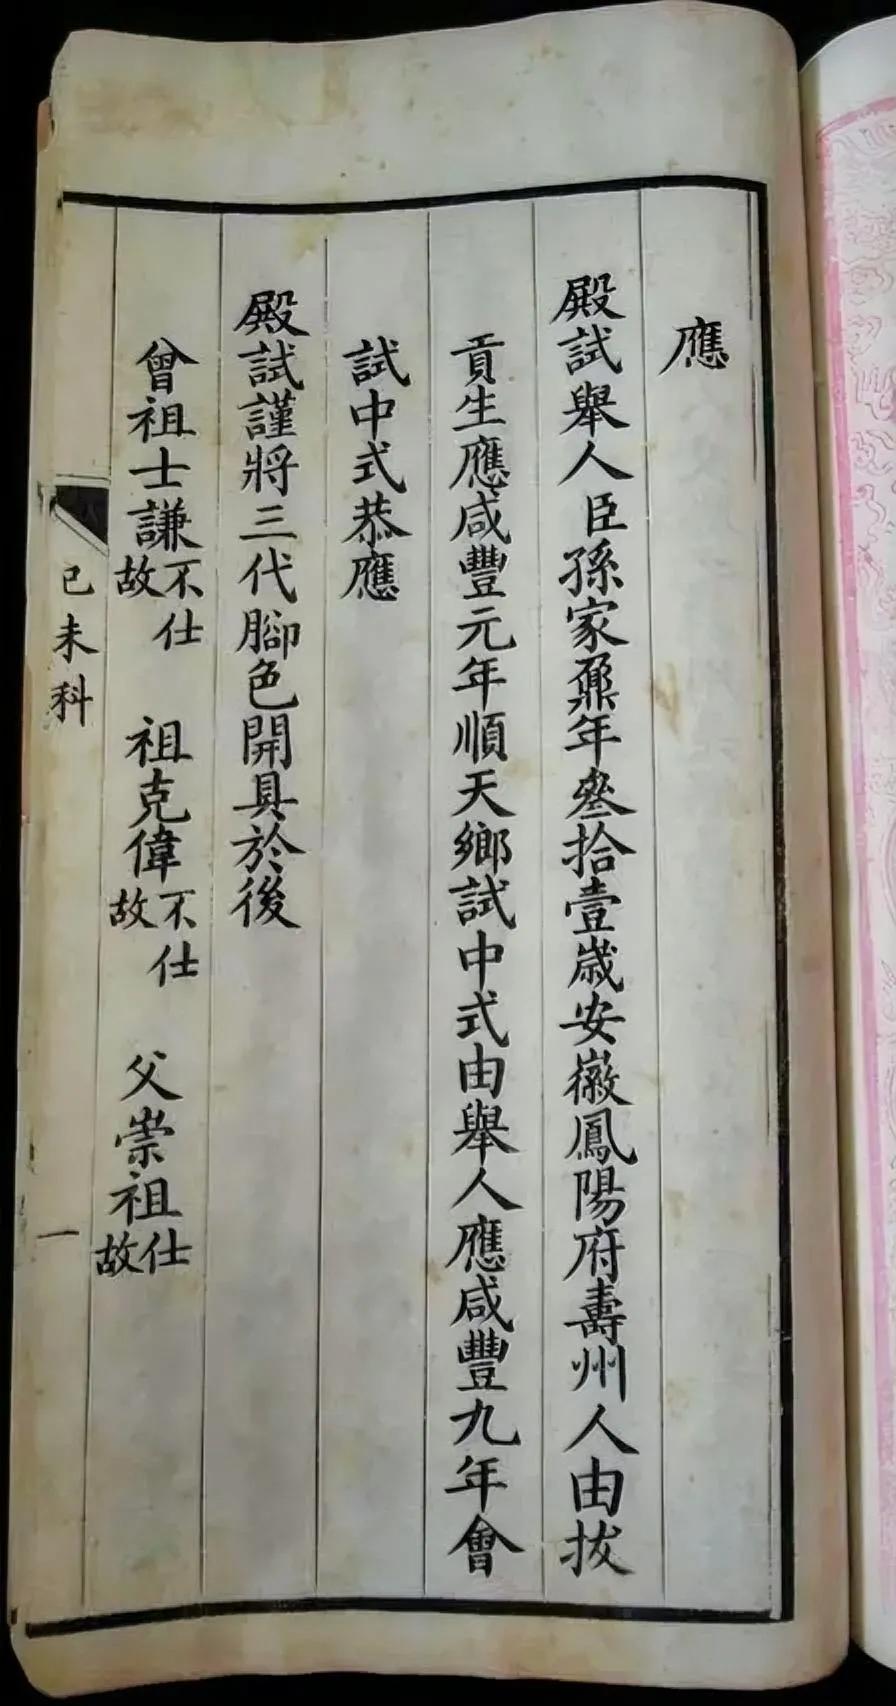 應
殿試舉人臣孫家鼐年叁拾壹歲安徽鳳陽府壽州人由拔
貢生應咸豐元年順天鄉試中式由舉人應咸豐九年會
試中式恭應
殿試謹將三代腳色開具於後
曾祖士謙不仕故 祖克偉不仕故 父崇祖仕故
己未科 一